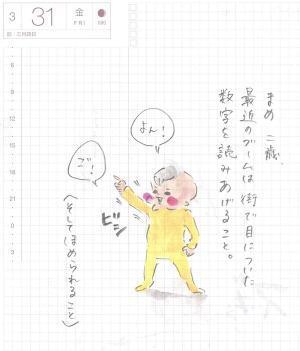 3
31
金
FRI
まめ 二歳、
最近のブームは 街で目についた
数字を 読みあげること。
よん!
ご!
ビシッ
(そしてほめられること)
18
21
0
3